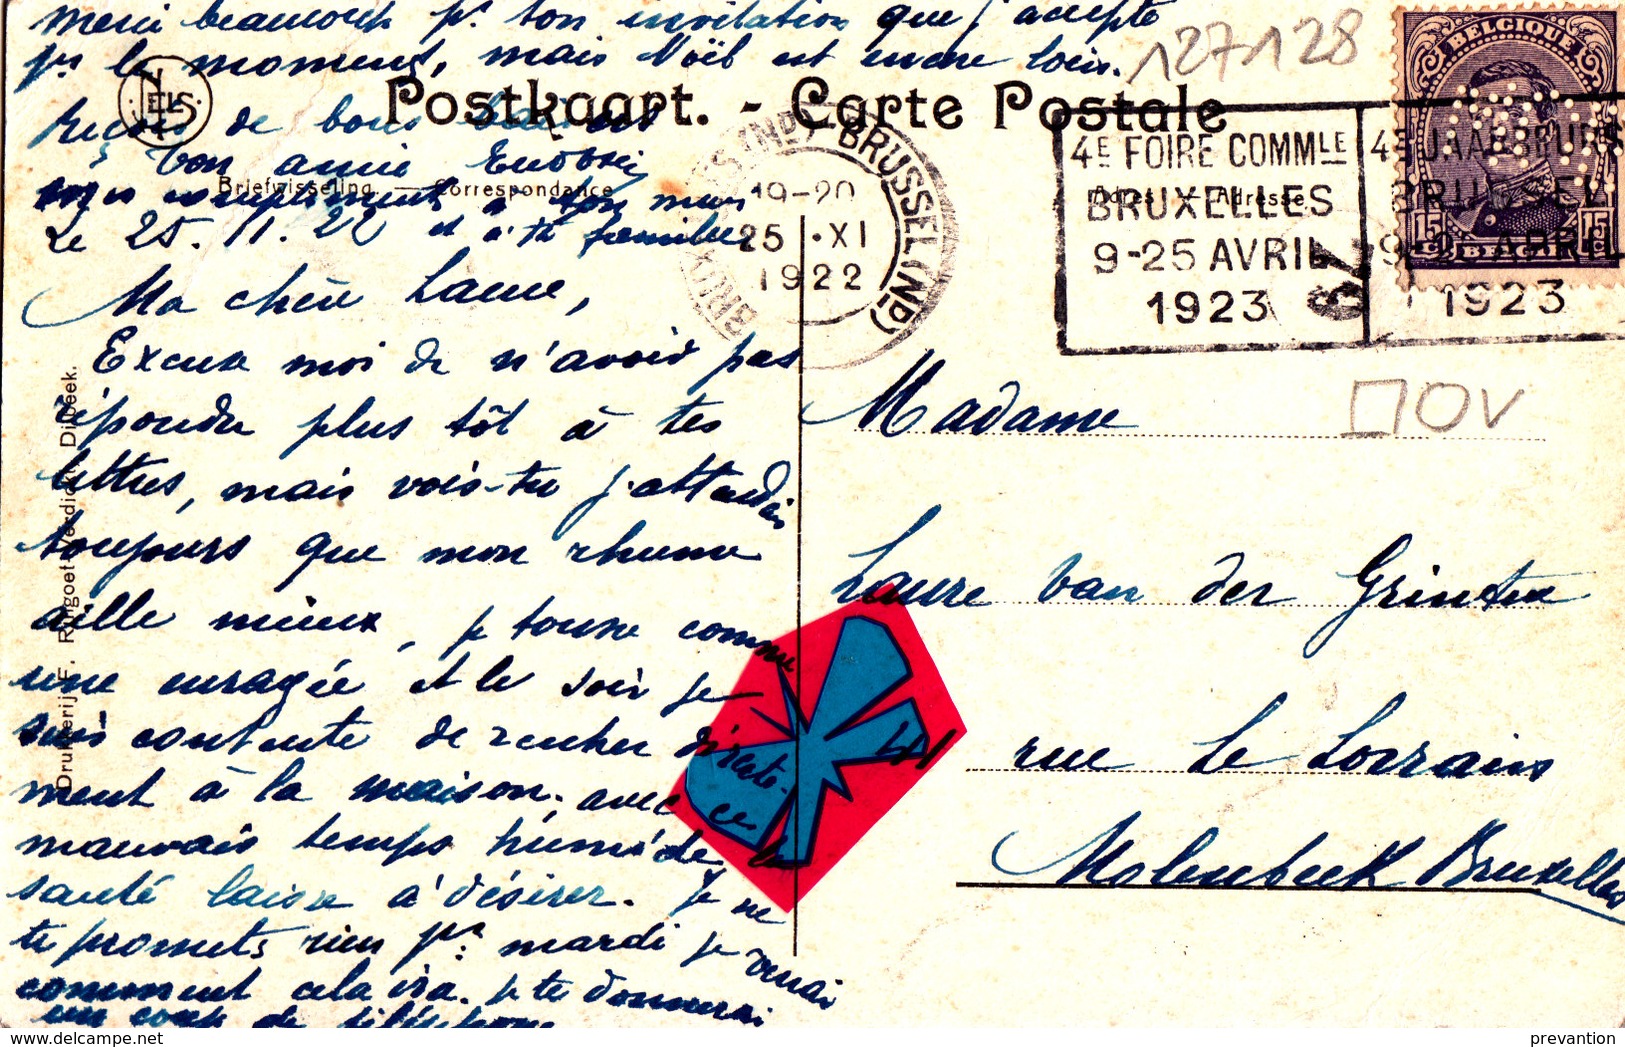 merci beaucoup pr ton invitation que j'accepte
pr le moment, mais Noël est encore loin.
127128
BELGIQUE
NELS
Postkaart. - Carte Postale
Reçois de bons baisers
ton amie
Briefwisseling. — Correspondance
mes compliments à ton mari
Le 25.11.22 et à ta famille
BRUSSEL (ND)
19-20
25 XI
1922
4E FOIRE COMMLE
BRUXELLES
9-25 AVRIL
1923
4E JAARBEURS
BRUSSEL
9-25 APRIL
1923
Adres — Adresse
15c 15c
BELGIË
Ma chère Laure,
Excuse moi de n'avoir pas
répondu plus tôt à tes
lettres, mais vois-tu j'attendais
toujours que mon rhume
aille mieux, je tousse comme
une enragée et le soir je
suis contente de rentrer directe-
ment à la maison, avec ce
mauvais temps humide la
santé laisse à désirer. Je ne
te promets rien pr mardi je verrai
comment cela ira. je te donnerai
un coup de téléphone
Drukkerij F. Ringoet Verdickt, Dilbeek.
Madame
Laure Van der Grinten
rue Le Lorrain
Molenbeek Bruxelles
prevantion